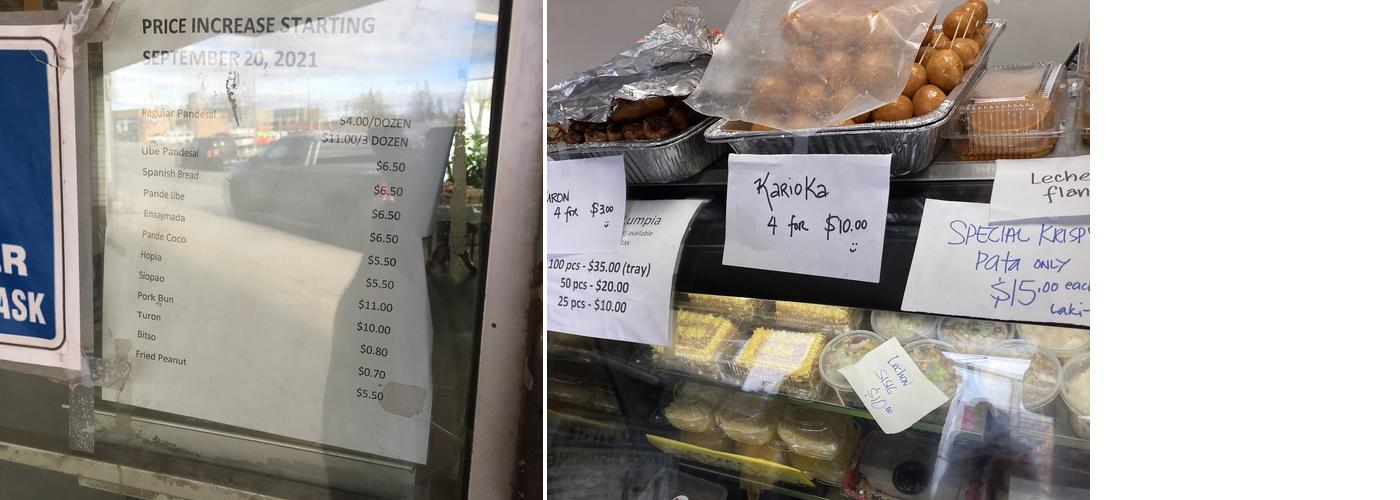 PRICE INCREASE STARTING
SEPTEMBER 20, 2021
Regular Pandesal
$4.00/DOZEN
$11.00/3 DOZEN
Ube Pandesal $6.50
Spanish Bread $6.50
Pande Ube $6.50
Ensaymada $6.50
Pande Coco $5.50
Hopia $5.50
Siopao $11.00
Pork Bun $10.00
Turon $0.80
Bitso $0.70
Fried Peanut $5.50
R
ASK
4 for $3.00
umpia
available
tax
100 pcs - $35.00 (tray)
50 pcs - $20.00
25 pcs - $10.00
KARIOKA
4 for $10.00
Leche
flan
SPECIAL KRISPY
Pata ONLY
$15.00 each
Laki-
Lechon
SISIG
$10.00